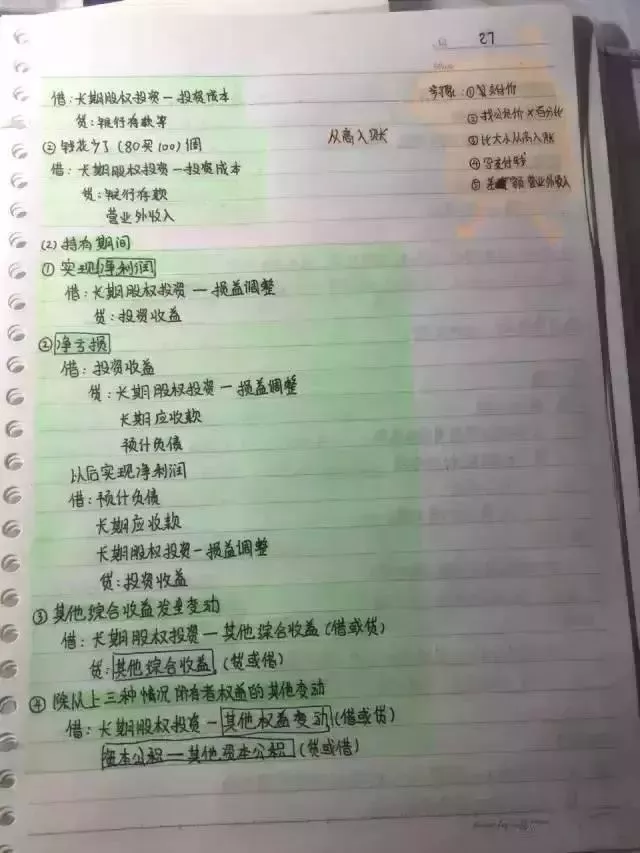 27
借：长期股权投资－投资成本
贷：银行存款等
② 钱花少了（80买100）调
借：长期股权投资－投资成本
贷：银行存款
营业外收入
从高入账
步骤：①写支付价
②找公允价×百分比
③比大小从高入账
④写支付钱
⑤差额营业外收入
(2) 持有期间
① 实现净利润
借：长期股权投资－损益调整
贷：投资收益
② 净亏损
借：投资收益
贷：长期股权投资－损益调整
长期应收款
预计负债
以后实现净利润
借：预计负债
长期应收款
长期股权投资－损益调整
贷：投资收益
③ 其他综合收益发生变动
借：长期股权投资－其他综合收益（借或贷）
贷：其他综合收益（贷或借）
④ 除以上三种情况所有者权益的其他变动
借：长期股权投资－其他权益变动（借或贷）
资本公积－其他资本公积（贷或借）